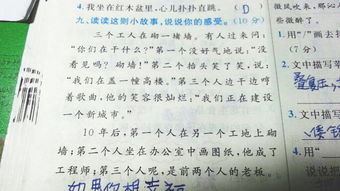 4.我坐在红木盆里,心儿扑扑直跳。 (D)
九、读读这则小故事,说说你的感受。(10分)
三个工人在砌一堵墙。有人过来问:
“你们在干什么?”第一个没好气地说:“没
看见吗?砌墙!”第二个抬头笑了笑,说:
“我们在盖一幢高楼。”第三个人边干边哼
着歌曲,他的笑容很灿烂:“我们正在建设
一个新城市。”
10年后,第一个人在另一个工地上砌
墙;第二个人坐在办公室中画图纸,他成了
工程师;第三个人呢,是前两个人的老板。
如果你想幸福
微风吹来,那
些微醉了。
1.用“/”画去括
(7分)
2.文中描写草
3.文中描写
4.用“
说说把